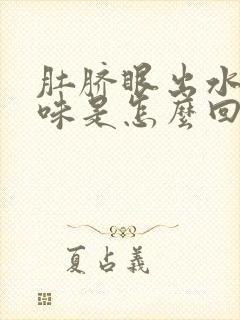 肚脐眼出水
味是怎麼回
夏占義